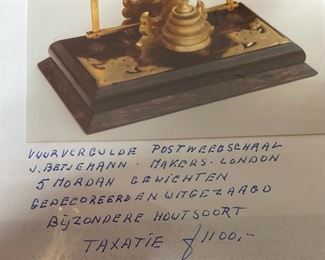 VUURVERGULDE POSTWEEGSCHAAL
J. BETJEMANN · MAKERS · LONDON
5 MORDAN GEWICHTEN
GEDECOREERD EN UITGEZAAGD
BIJZONDERE HOUTSOORT
TAXATIE ƒ 1100,-